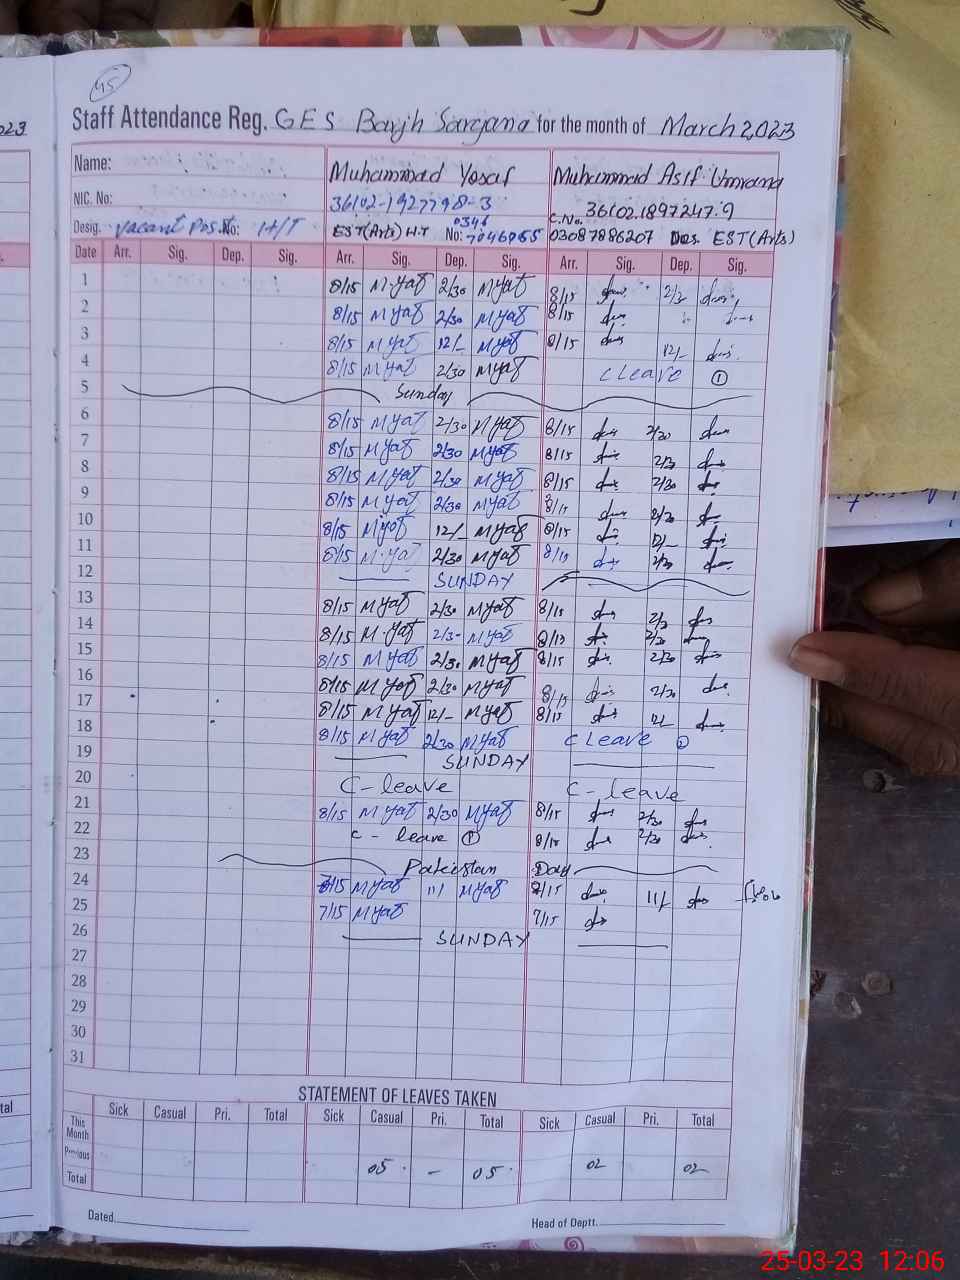 45
Staff Attendance Reg. GES Barjh Sargana for the month of March 2023
Name: Muhammad Yosaf Muhammad Asif Umrana
NIC. No: 36102-1927798-3 36102.1897247.9
Desig. Vacant Post No: H/T EST (Arts) H.T No: 0346 7046065 C.No. 03087886207 Des. EST (Arts)
Date Arr. Sig. Dep. Sig. Arr. Sig. Dep. Sig. Arr. Sig. Dep. Sig.
1 8/15 M.yaf 2/30 M.yaf 8/15 2/3
2 8/15 M yaf 2/30 M yaf 8/15
3 8/15 M yaf 12/- M yaf 8/15 12/-
4 8/15 M yaf 2/30 M yaf C Leave 1
5 Sunday
6 8/15 M yaf 2/30 M yaf 8/15 2/30
7 8/15 M yaf 2/30 M yaf 8/15 2/3
8 8/15 M yaf 2/30 M yaf 8/15 2/30
9 8/15 M yaf 2/30 M yaf 8/15 2/30
10 8/15 M yaf 12/- M yaf 8/15 12/-
11 8/15 M.yaf 2/30 M yaf 8/15 2/30
12 SUNDAY
13 8/15 M yaf 2/30 M yaf 8/15 2/3
14 8/15 M.yaf 2/3- M yaf 8/15 2/30
15 8/15 M yaf 2/30 M yaf 8/15 2/30
16 8/15 M yaf 2/30 M yaf 8/15 2/30
17 8/15 M yaf 12/- M yaf 8/15 12/-
18 8/15 M yaf 2/30 M yaf C Leave 2
19 SUNDAY
20 C-leave C-leave
21 8/15 M yaf 2/30 M yaf 8/15 2/30
22 C-leave 1 8/15 2/30
23 Pakistan Day
24 7/15 M yaf 11/ M yaf 7/15 11/
25 7/15 M yaf 7/15
26 SUNDAY
27
28
29
30
31
STATEMENT OF LEAVES TAKEN
Sick Casual Pri. Total Sick Casual Pri. Total Sick Casual Pri. Total
This Month
Previous 05 - 05 02 02
Total
Dated. Head of Deptt.
25-03-23 12:06